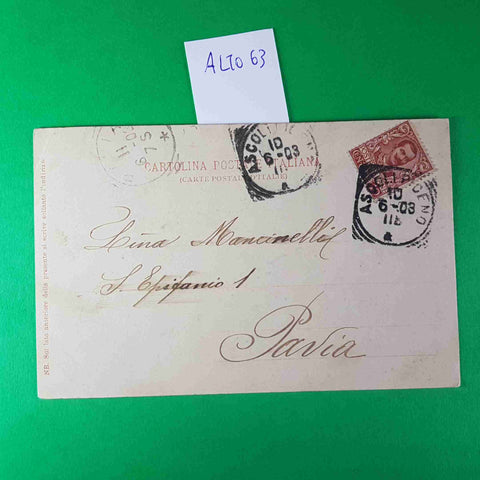 ALTO 63
CARTOLINA POSTALE ITALIANA
(CARTE POSTALE D'ITALIE)
ASCOLI
10
6-03
11S
ASCOLI PICENO
10
6-03
11S
Lina Mancinelli
S. Epifanio 1
Pavia
NB. Sul lato anteriore della presente si scrive soltanto l'indirizzo